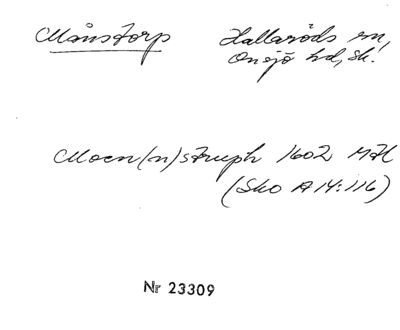 Månstorp Hallaröds sn,
Onsjö hd, Sk.
Moen(n)strup 1602 MH
(Sko A 14:116)
Nr 23309